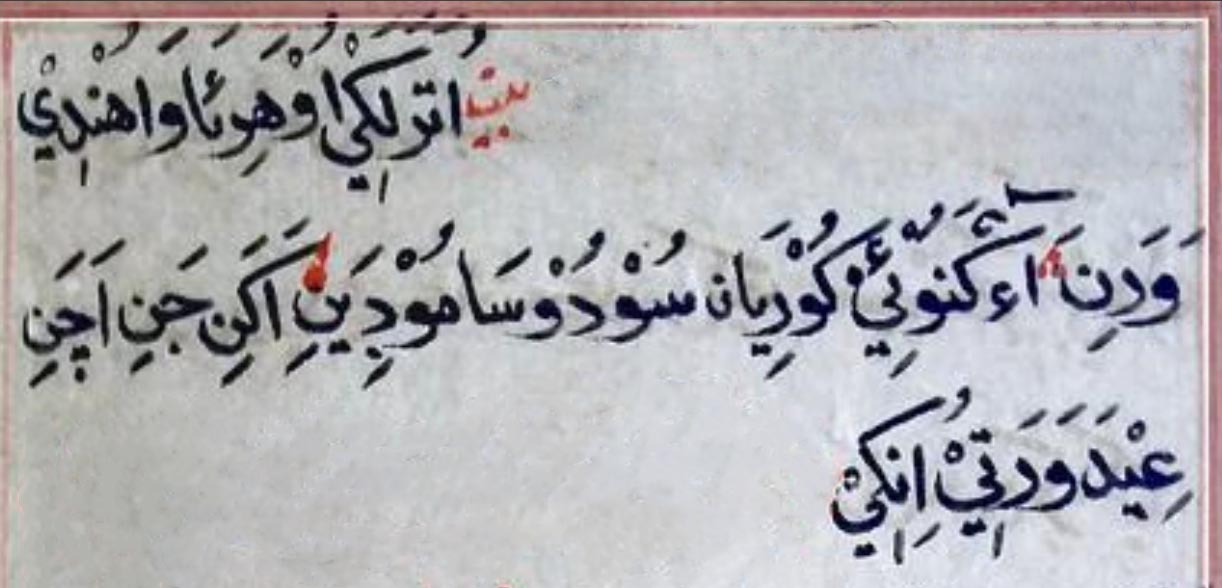 بيت اُتَرَ لِکِيْ اوْهِرِئا وَاهُنْدِيْ
وَدَنِ آءٌ کَنُوئِيْ کُوْرِيان سُوْدُوْ سَامُوْدِيَنِ اَکَنِ جَنِ اَچَنِ
عِيْدَ وَرَتِيْ اِنِکِيْ